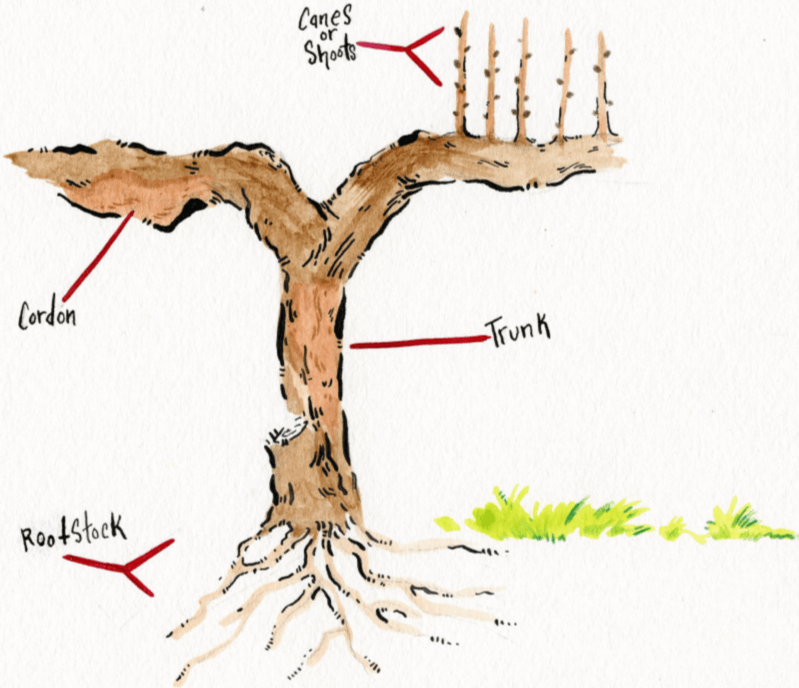 Canes
or
Shoots
Cordon
Trunk
RootStock